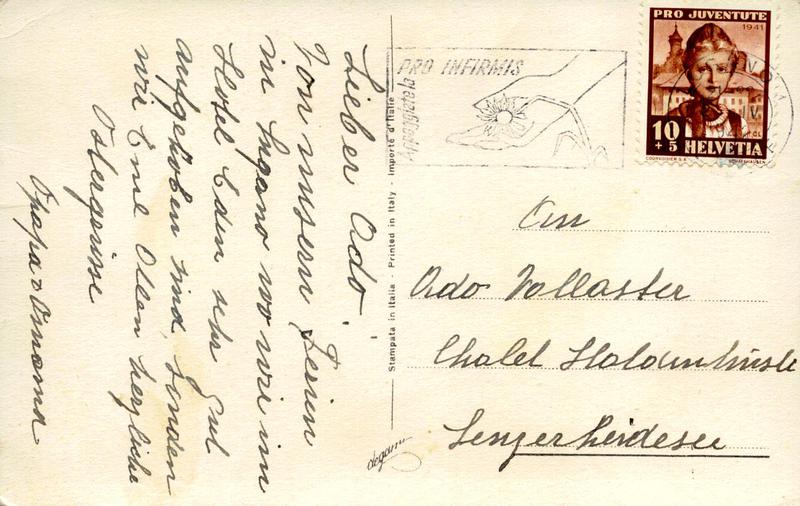 Lieber Ado,
Von unsern Ferien
in Lugano wo wir im
Hotel Eden sehr gut
aufgehoben sind, senden
wir Eme Ollen herzliche
Ostergrüsse
Opapa & Omama
Stampata in Italia - Printed in Italy - Importé d'Italie
degami
PRO INFIRMIS
PRO JUVENTUTE
1941
10
+ 5
HELVETIA
COURVOISIER S.A.
An
Ado Vollaster
Chalet
Lenzerheidesee